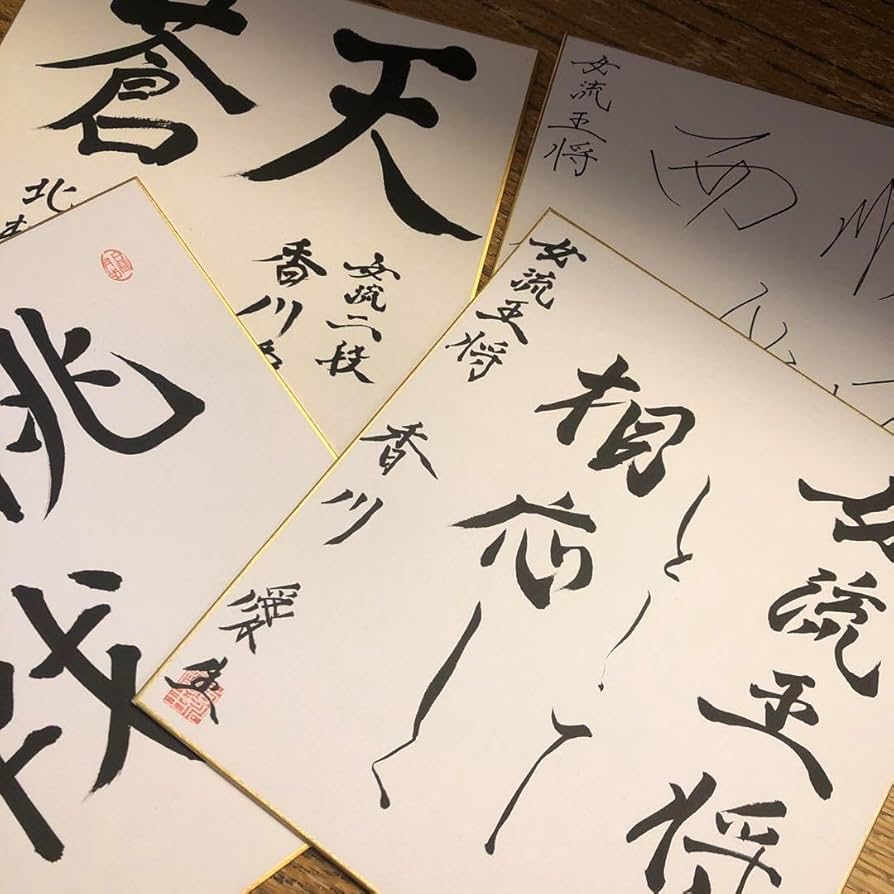 蒼天
女流二段
香川
北
女流王将
西
挑戦
女流王将
として
相応しく
女流王将
香川愛生